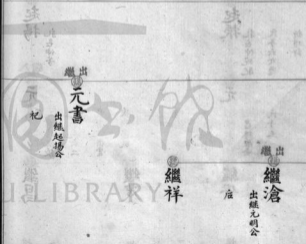 出繼
繼滄
出繼元明公
后
繼祥
出繼
元書
出繼起揚公
圖書館
LIBRARY